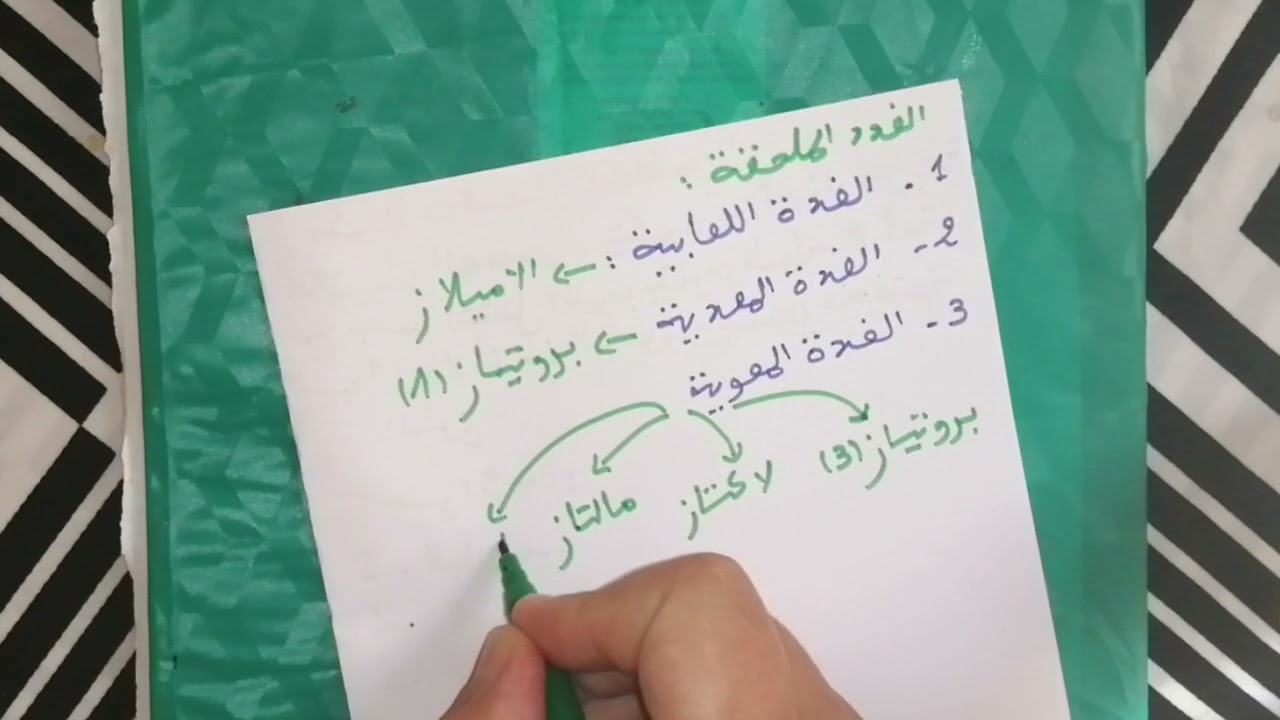 الغدد الملحقة :
1. الغدة اللعابية : ← الاميلاز
2- الغدة المعدية ← بروتيياز (1)
3- الغدة المعوية
بروتيياز (3) لاكتاز مالتاز